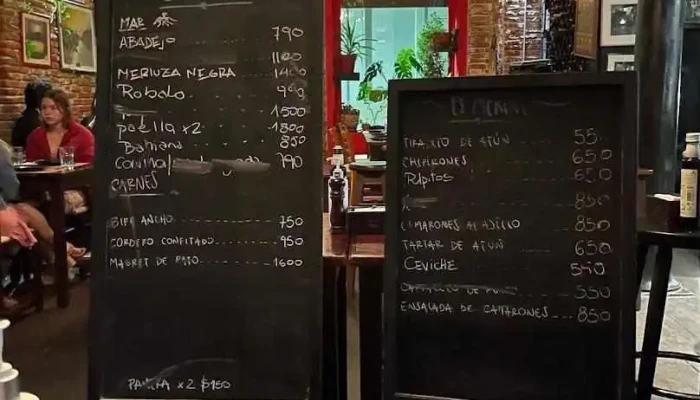 MAR
ABADEJO 790
1100
MERLUZA NEGRA 1400
Robalo
1500
paella x2 1800
Bahiano 850
790
CARNES
BIFE ANCHO 750
CORDERO CONFITADO 950
MAGRET DE PATO 1600
x2 $150
TIRADITO DE ATÚN 55
CHIPIRONES 650
Rápitos 650
850
CAMARONES AL AJILLO 850
TARTAR DE ATÚN 650
CEVICHE 550
550
ENSALADA DE CAMARONES 850